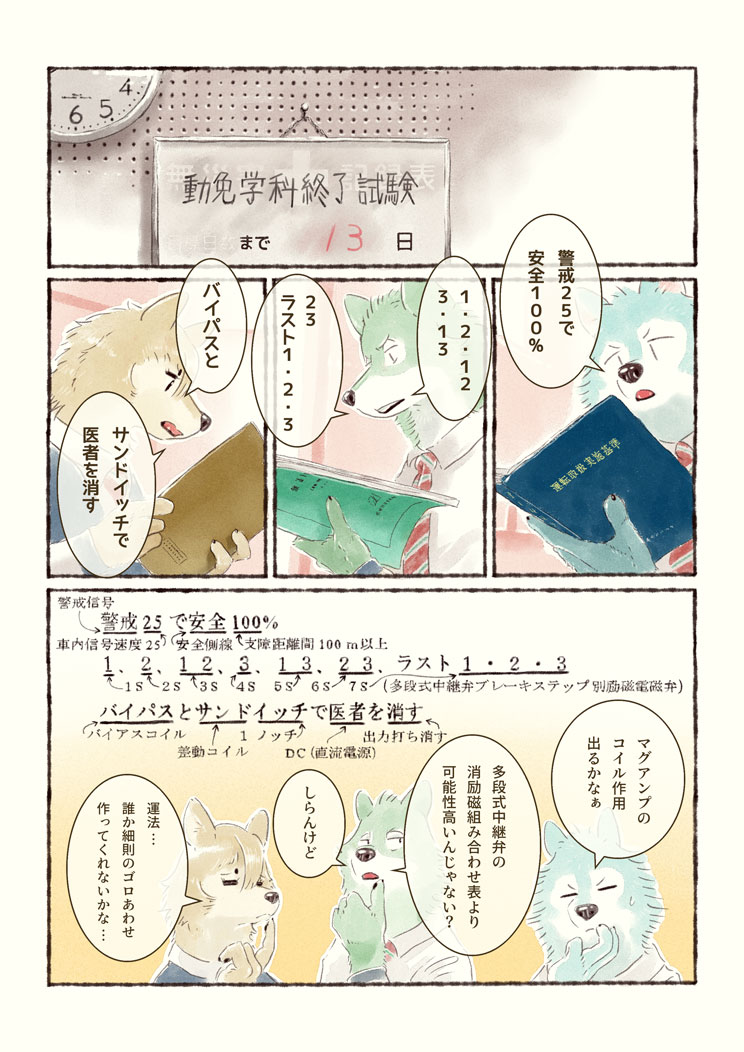 4
5
6
動免学科終了試験
まで 13 日
警戒25で
安全100%
運転取扱実施基準
1・2・12
3・13
23
ラスト1・2・3
バイパスと
サンドイッチで
医者を消す
警戒信号
警戒25で安全100%
車内信号速度25 安全側線 支障距離間100m以上
1、2、12、3、13、23、ラスト1・2・3
1S 2S 3S 4S 5S 6S 7S (多段式中継弁ブレーキステップ別励磁電磁弁)
バイパスとサンドイッチで医者を消す
バイアスコイル 1ノッチ 出力打ち消す
差動コイル DC(直流電源)
マグアンプの
コイル作用
出るかなぁ
多段式中継弁の
消励磁組み合わせ表より
可能性高いんじゃない?
しらんけど
運法…
誰か細則のゴロあわせ
作ってくれないかな…